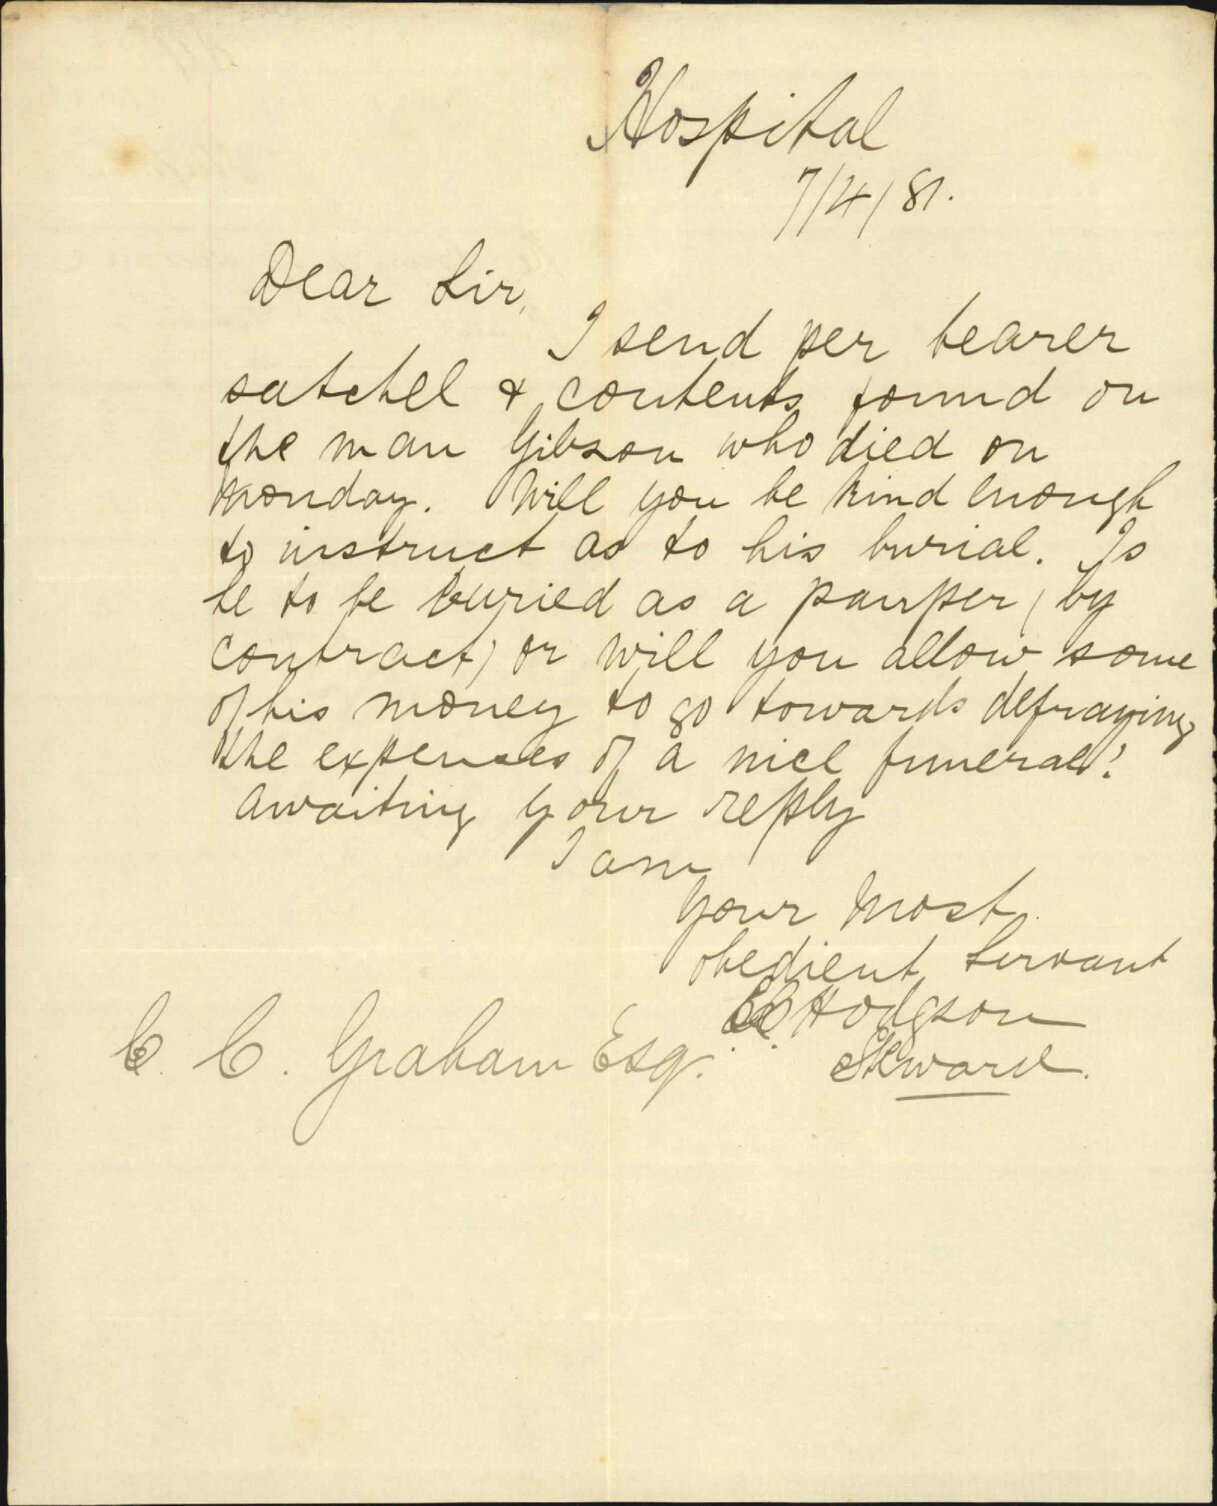 Hospital
7/4/81.
Dear Sir,
I send per bearer
satchel & contents found on
the man Gibson who died on
Monday. Will you be kind enough
to instruct as to his burial. Is
he to be buried as a pauper (by
contract) or will you allow some
of his money to go towards defraying
the expenses of a nice funeral?
Awaiting your reply
I am
Your most
obedient Servant
Hodgson
Steward.
C. C. Graham Esq.